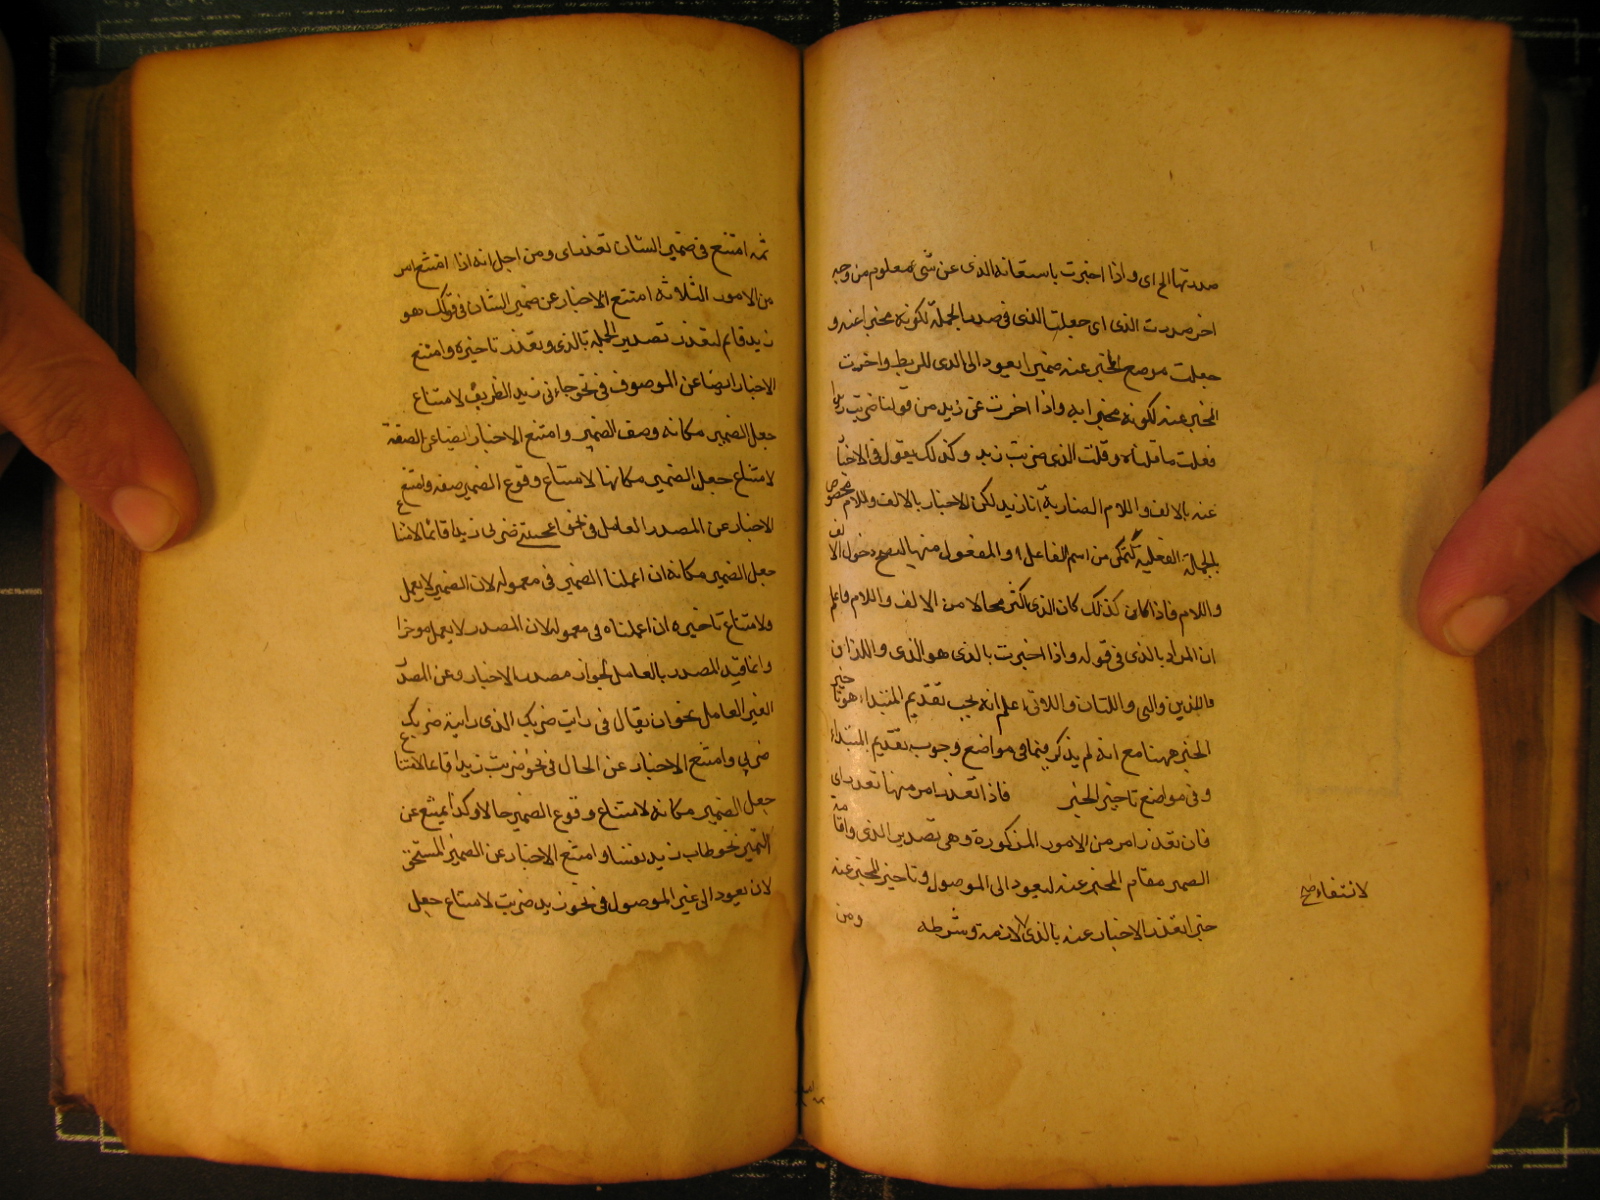 صدرتها الخ اى واذا اخبرت باستعانة الذى عن شئ معلوم من وجه
اخر صدرت الذى اى جعلت الذى فى صدر الجملة لكونه مخبرا عنه و
جعلت موضع المخبر عنه ضميرا يعود الى الذى للربط واخرت
المخبر عنه لكونه مخبرا به واذا اخبرت عن زيد من قولنا ضربت زيدا
فعلت ما قلناه وقلت الذى ضربت زيد وكذلك يقول فى الاخبار
عنه بالالف واللام الضاربة انا زيد لكن الاخبار بالالف واللام مخصوص
بالجملة الفعلية ليمكن من اسم الفاعل او المفعول منها ليصح دخول الالف
واللام فاذا كان كذلك كان الذى اكثر مجالا من الالف واللام واعلم
ان المراد بالذى فى قوله واذا اخبرت بالذى هو الذى واللذان
والذين والتى واللتان واللاتى اعلم انه يجب تقديم المبتداء هو تاخير
الخبر ههنا مع انه لم يذكر فيما فى مواضع وجوب تقديم المبتداء
وفى مواضع تاخير الخبر فاذا تعذر امر منها تعذر اى
فان تعذر امر من الامور المذكورة وهى تصدير الذى واقامة
الضمير مقام المخبر عنه ليعود الى الموصول وتاخير المخبر عنه
خبرا تعذر الاخبار عنه بالذى لان لازمه وشرطه ومن
لانتفاء صح
ثمه امتنع فى ضمير الشان تعذر اى ومن اجل انه اذا امتنع امر
من الامور الثلاثة امتنع الاخبار عن ضمير الشان فى قولك هو
زيد قائم لتعذر تصدير الجملة بالذى وتعذر تاخيره وامتنع
الاخبار ايضا عن الموصوف فى نحو جاءنى زيد الظريف لامتناع
جعل الضمير مكانه وصف الضمير وامتنع الاخبار ايضا عن الصفة
لامتناع جعل الضمير مكانها لامتناع وقوع الضمير صفة وامتنع
الاخبار عن المصدر العامل فى نحو اعجبنى ضربى زيدا قائما لامتناع
جعل الضمير مكانه ان اعملنا الضمير فى معموله لان الضمير لا يعمل
ولامتناع تاخيره ان اعملناه فى معموله لان المصدر لا يعمل موخرا
وانما قيد المصدر بالعامل لجواز مصدر الاخبار وعن المصدر
الغير العامل نحو ان يقال فى رايت ضربك الذى رايته ضربك
ضربى وامتنع الاخبار عن الحال فى نحو ضربت زيدا قائما لامتناع
جعل الضمير مكانه لامتناع وقوع الضمير حالا وكذا يمتنع عن
التميز نحو طاب زيد نفسا وامتنع الاخبار عن الضمير المستحق
لان يعود الى غير الموصول فى نحو زيد ضربت لامتناع جعل